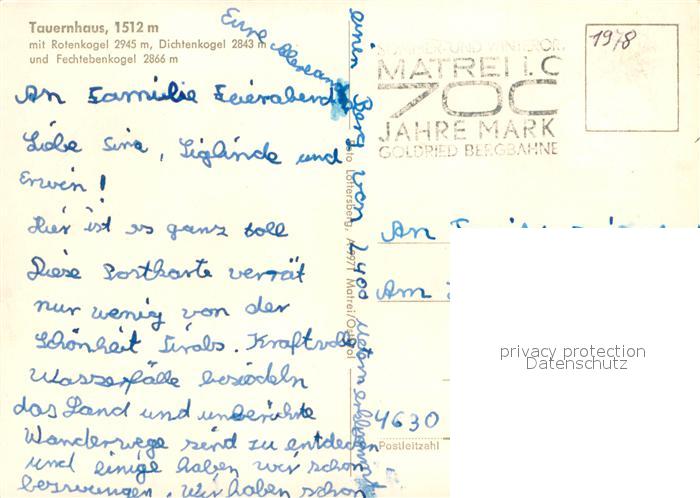 Tauernhaus, 1512 m
mit Rotenkogel 2945 m, Dichtenkogel 2843 m
und Fechtebenkogel 2866 m
An Familie Feierabend
Liebe Sina, Siglinde und
Erwin!
Hier ist es ganz toll
Diese Postkarte verrät
nur wenig von der
Schönheit Tirols. Kraftvolle
Wasserfälle besiedeln
das Land und unberührte
Wanderwege sind zu entdecken
und einige haben wir schon
bezwungen. Wir haben schon
einen Berg von 2400 Metern erklommen
Eure
Foto Lottersberg, A-9971 Matrei/Osttirol
SOMMER-UND WINTERORT
MATREI i.O
700
JAHRE MARK
GOLDRIED BERGBAHNE
1978
An
Am
4630
Postleitzahl
privacy protection
Datenschutz